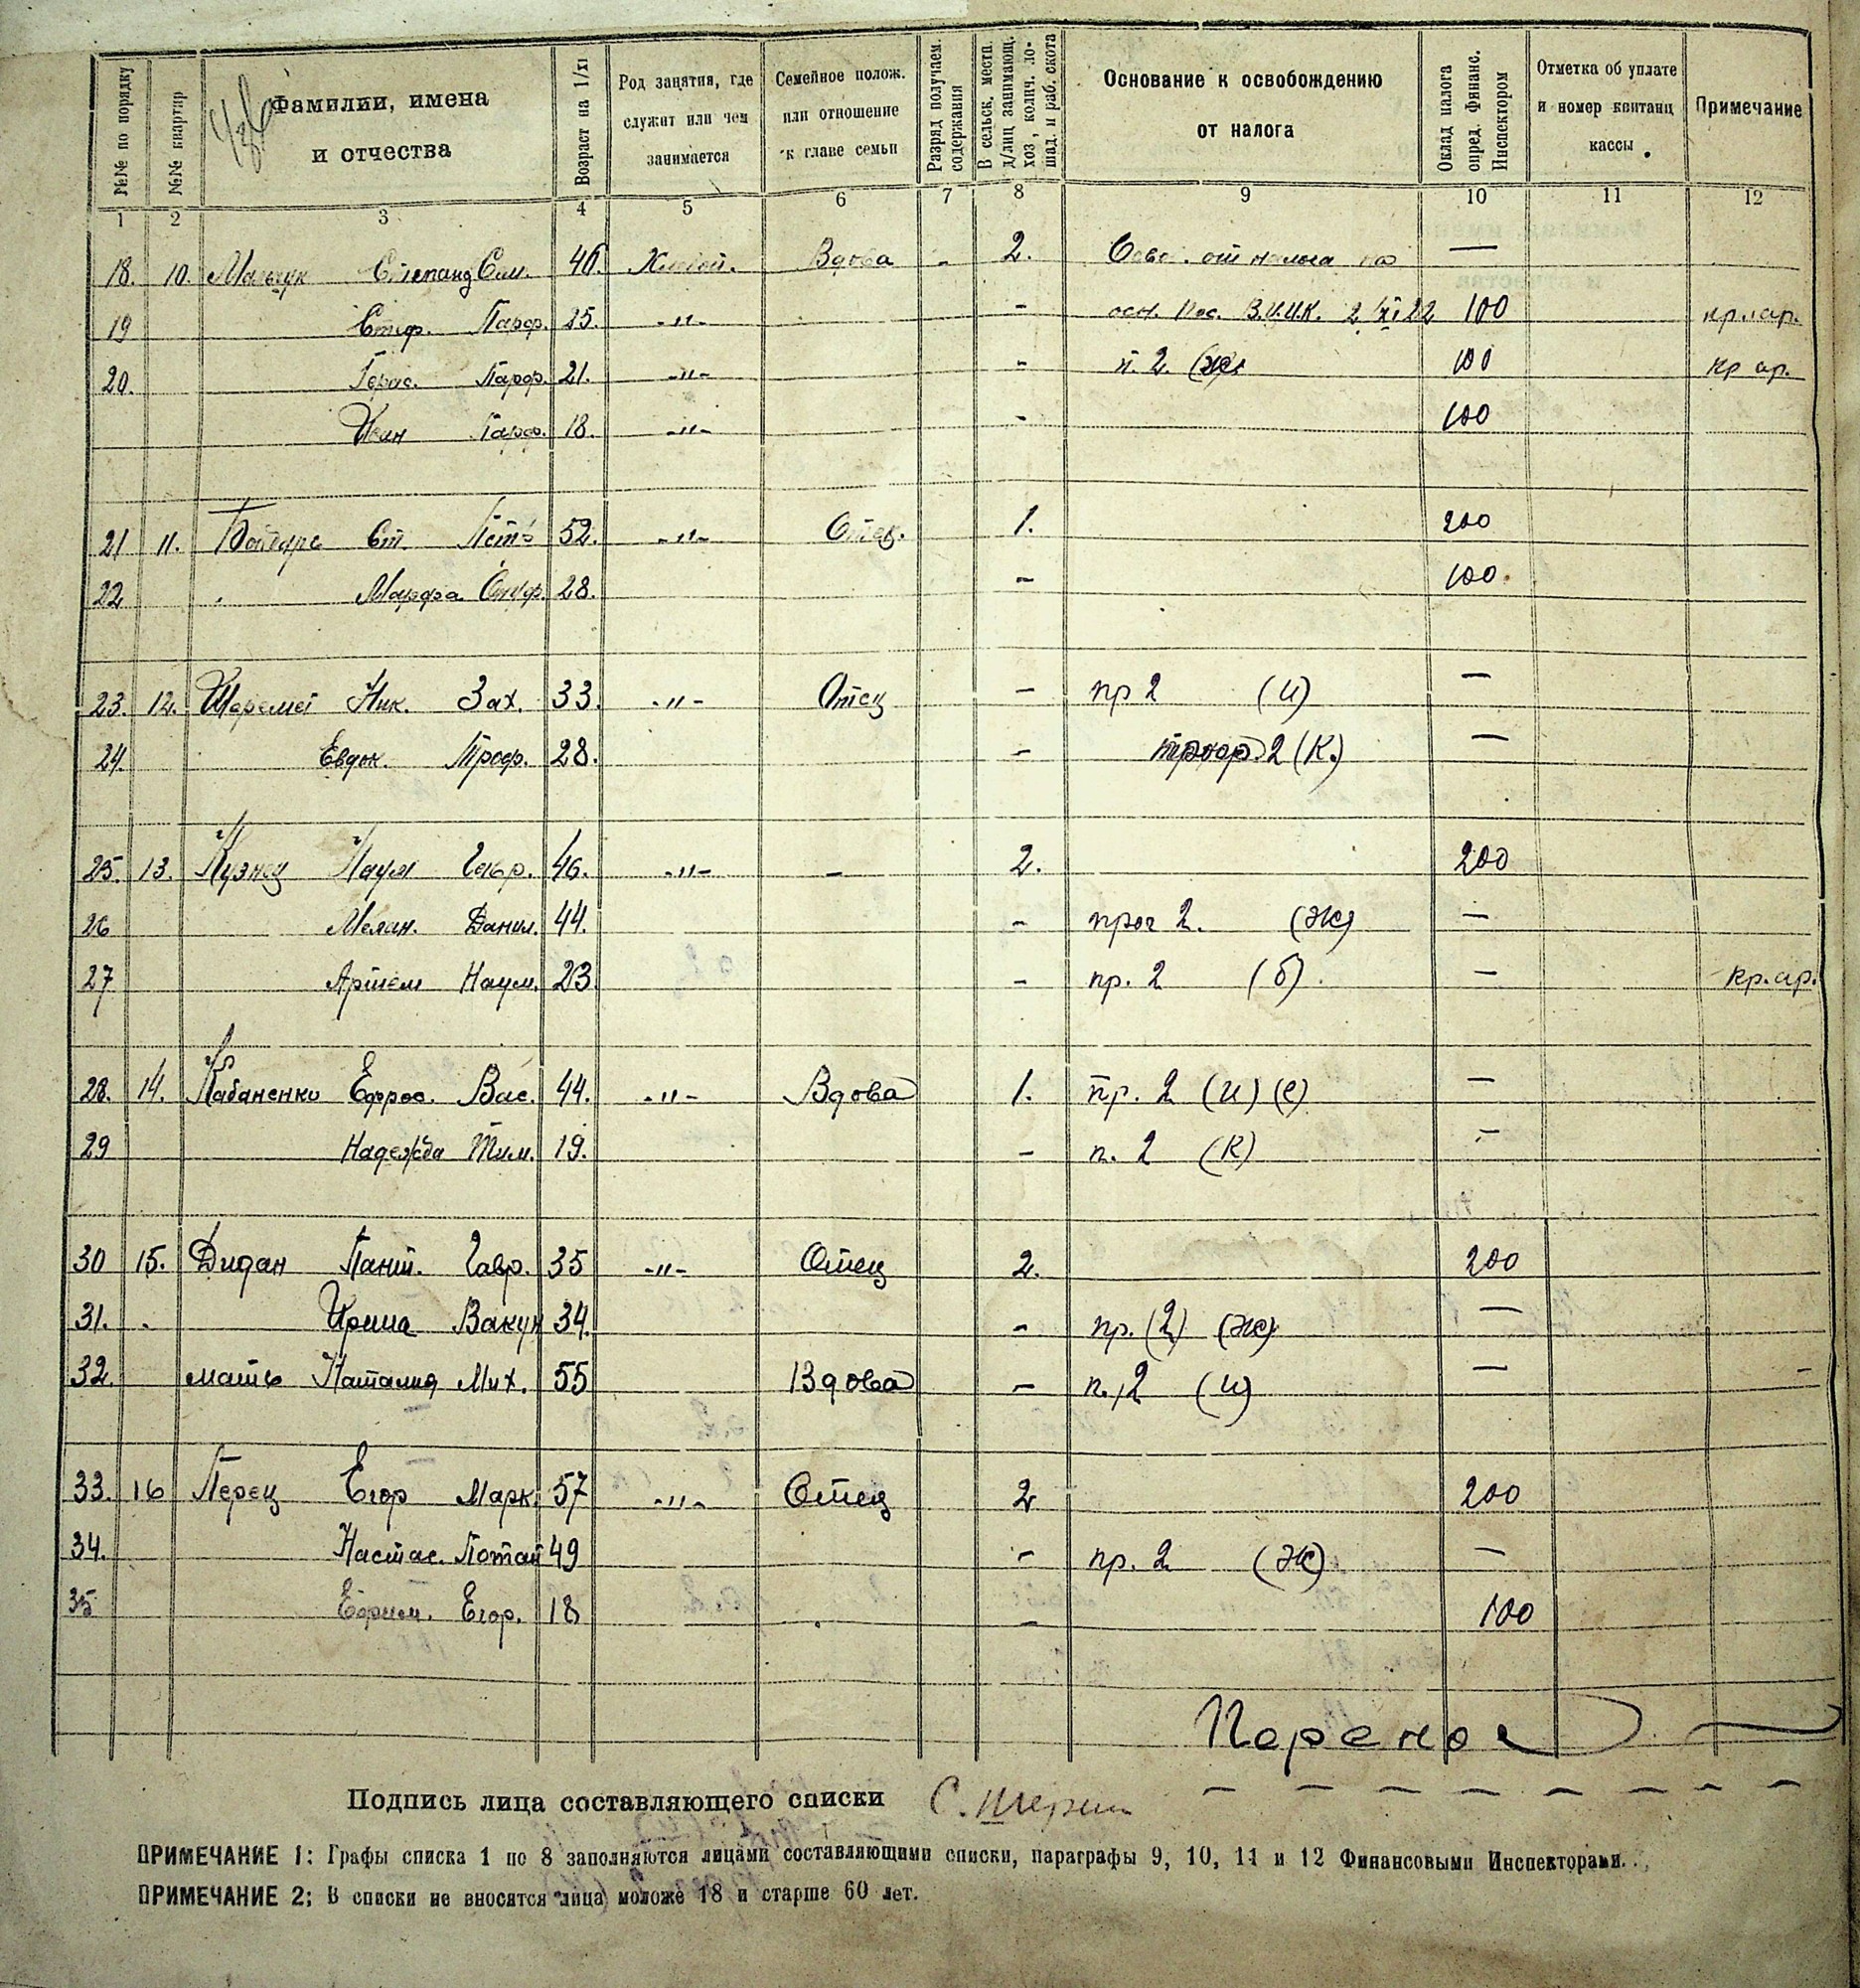 №№ по порядку | №№ квартир | Фамилии, имена и отчества | Возраст на 1/XI | Род занятия, где служит или чем занимается | Семейное полож. или отношение к главе семьи | Разряд получаем. содержания | В сельск. местн. д/лиц занимающ. хоз, колич. лошад. и раб. скота | Основание к освобождению от налога | Оклад налога опред. Финанс. Инспектором | Отметка об уплате и номер квитанц кассы | Примечание
1 2 3 4 5 6 7 8 9 10 11 12
18. 10. Степанид 46. Вдова - 2. от налога на —
19 Стеф. Парф. 25. -"- - осн. Пос. В.Ц.И.К. 2/XI 22 100 кр. ар.
20. Герас. Парф. 21. -"- - п. 2. (ж) 100 кр ар.
Иван Парф. 18. -"- - 100
21 11. Ст. 52. -"- Отец. 1. 200
22 Марфа 28. - 100.
23. 12. Шеремет Ник. Зах. 33. -"- Отец - пр 2 (и) —
24. Евдок. Троф. 28. - 2 (к.) —
25. 13. Кузнец Наум Гавр. 46. -"- - 2. 200
26 Мелан. Данил. 44. - 2. (ж) —
27 Артем Наум. 23 - пр. 2 (б). — кр. ар.
28. 14. Кабаненко Ефрос. Вас. 44. -"- Вдова 1. пр. 2 (и) (е) —
29 Надежда Тим. 19. - п. 2 (к) —
30 15. Дидан Пант. Гавр. 35 -"- Отец 2. 200
31. Ирина Вакул 34. - пр. (2) (ж) —
32. мать Наталия Мих. 55 Вдова - п. 2 (и) —
33. 16 Перец Егор Марк. 57 -"- Отец 2 200
34. Настас. Потап 49 - пр. 2 (ж) —
35 Ефрем. Егор. 18 - 100
Перенос
Подпись лица составляющего списки С.
ПРИМЕЧАНИЕ 1: Графы списка 1 по 8 заполняются лицами составляющими списки, параграфы 9, 10, 11 и 12 Финансовыми Инспекторами.
ПРИМЕЧАНИЕ 2: В списки не вносятся лица моложе 18 и старше 60 лет.